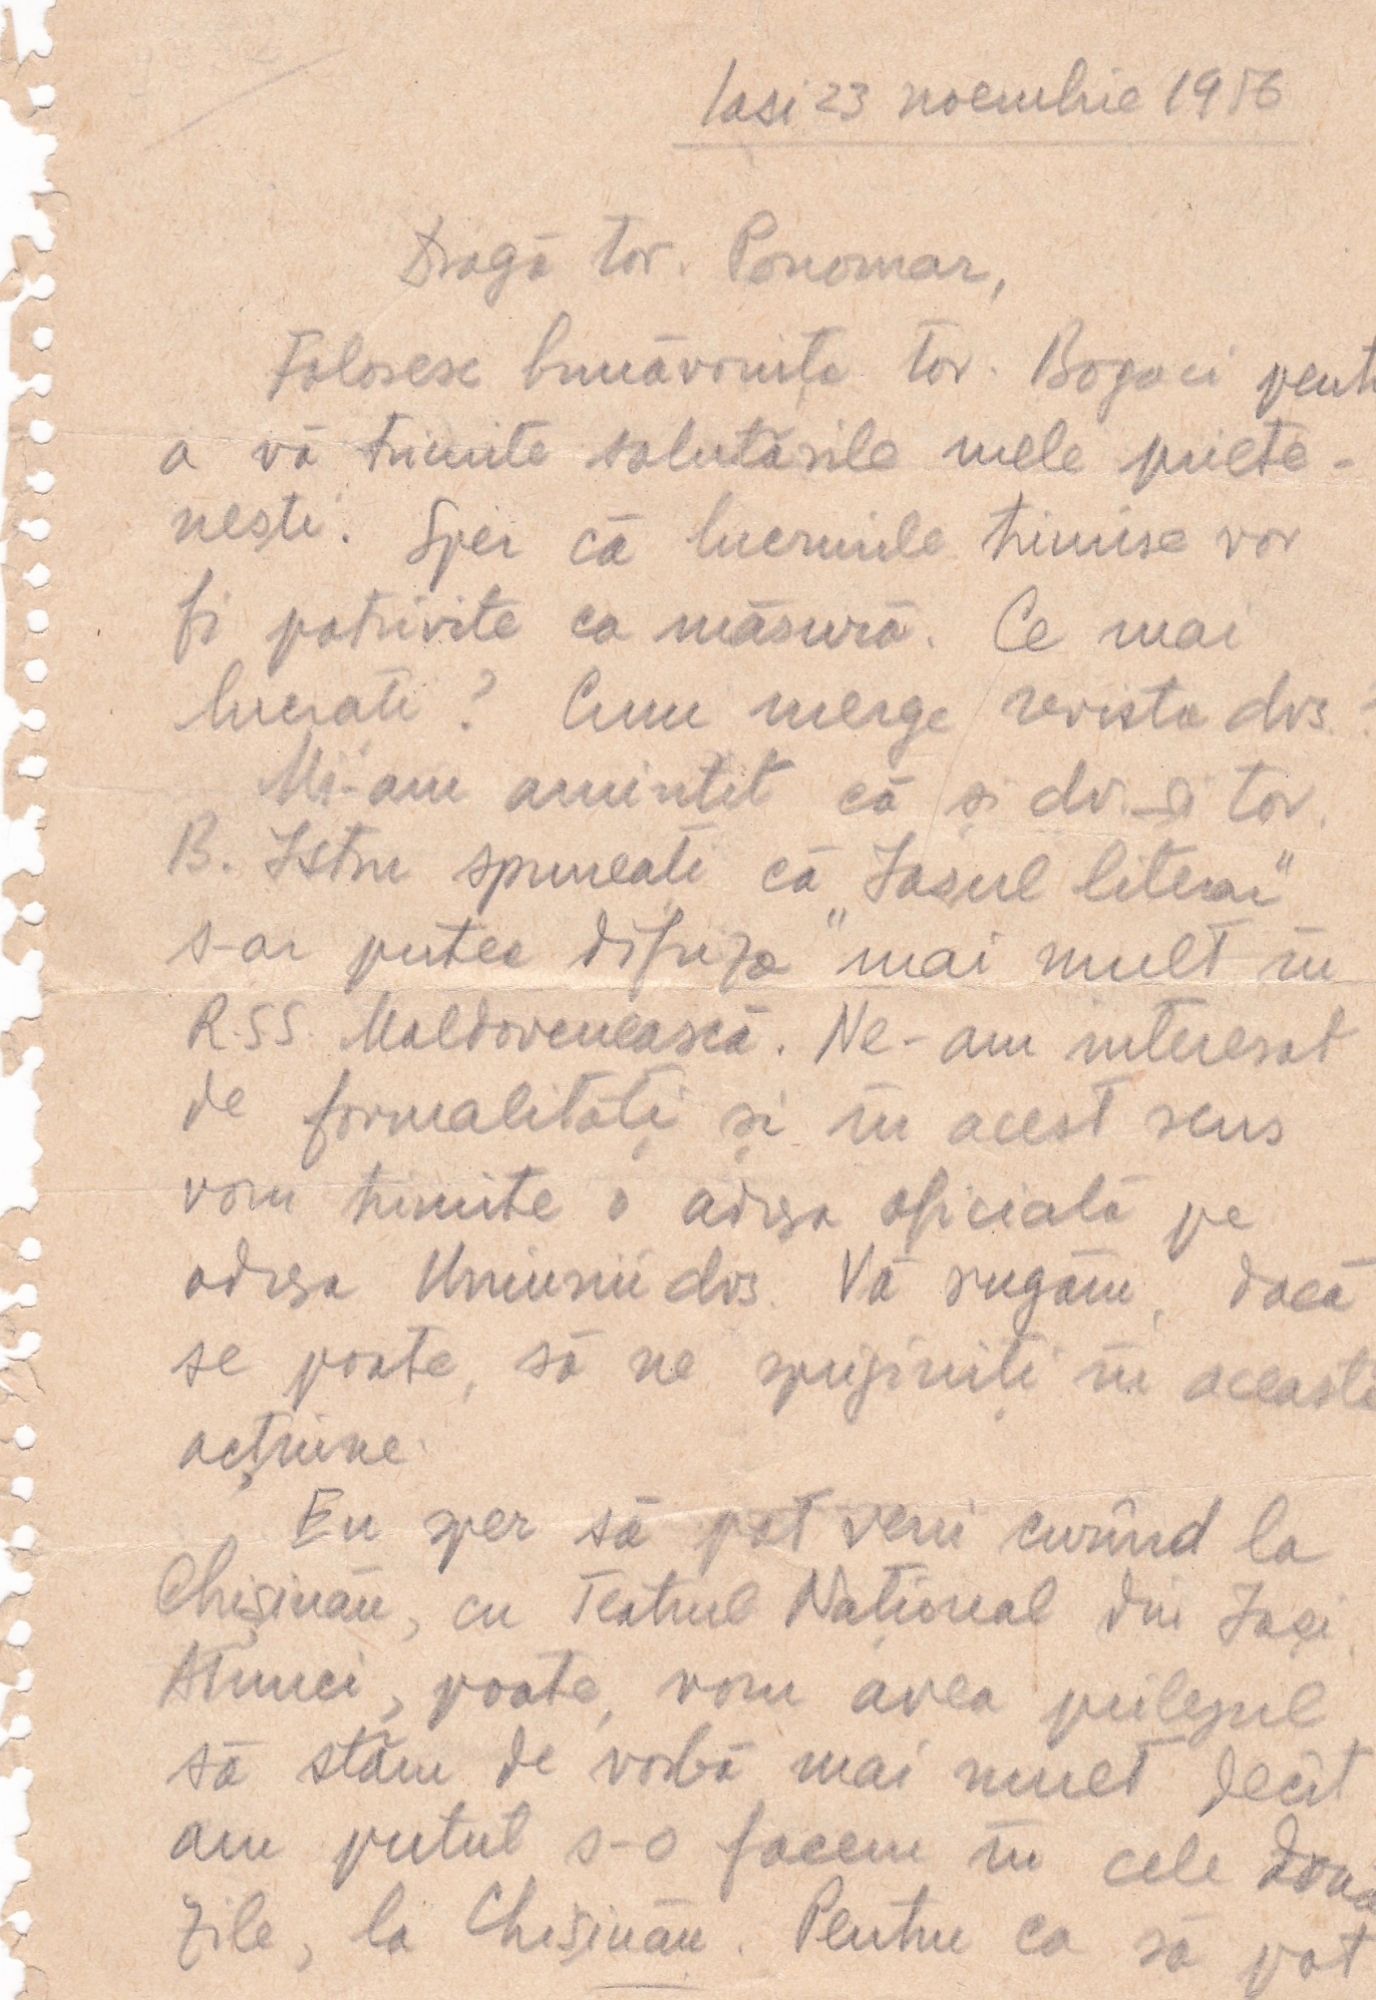 Iasi 23 noembrie 1956
Dragă tov. Ponomar,
Folosesc bunăvoința tov. Bogaci pentr
a vă trimite salutările mele priete-
nești. Sper că lucrurile trimise vor
fi potrivite ca măsură. Ce mai
lucrați? Cum merge revista dvs.?
Mi-am amintit că și dv. și tov.
B. Istru spuneați că „Iașul literar"
s-ar putea difuza mai mult în
R.S.S. Moldovenească. Ne-am interesat
de formalități și în acest sens
vom trimite o adresa oficială pe
adresa Uniunii dvs. Vă rugăm, dacă
se poate, să ne sprijiniți în aceast
acțiune.
Eu sper să pot veni curînd la
Chișinău, cu Teatrul Național din Iași.
Atunci, poate, vom avea prilejul
să stăm de vorbă mai mult decît
am putut s-o facem în cele două
zile, la Chișinău. Pentru ca să pot